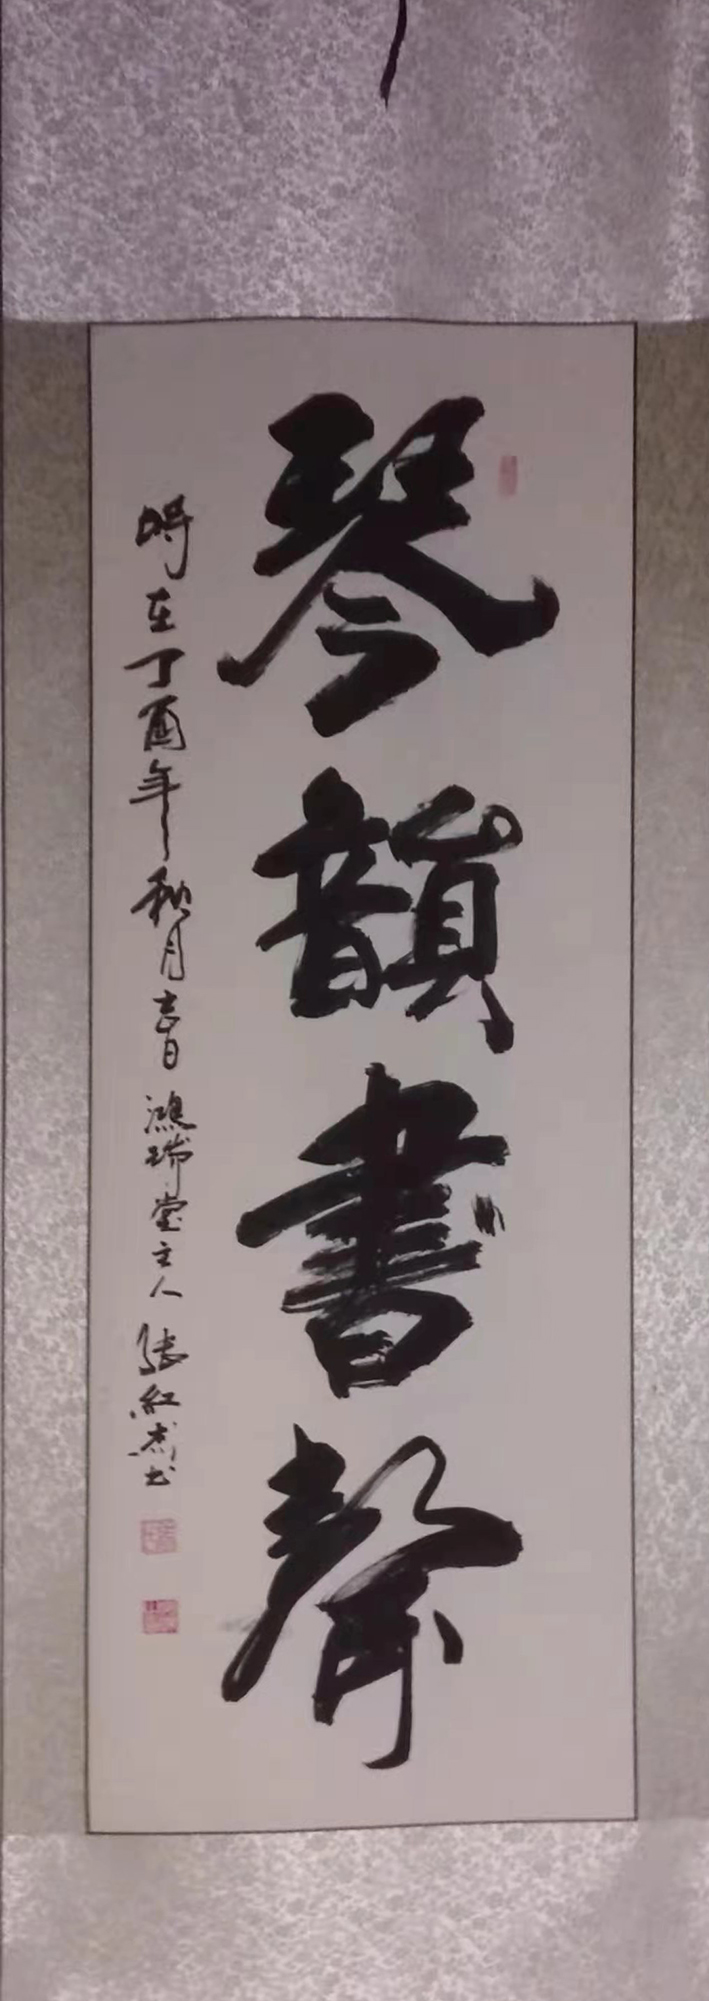 琴韻書聲
時在丁酉年秋月吉日鴻瑞堂主人張紅杰书